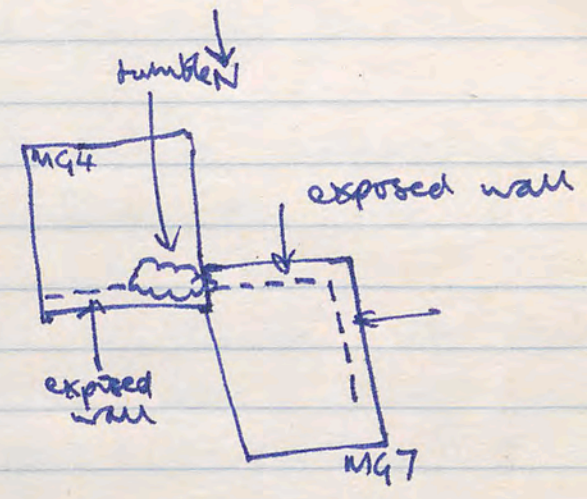 N
tumble
MG4
exposed wall
exposed
wall
MG7